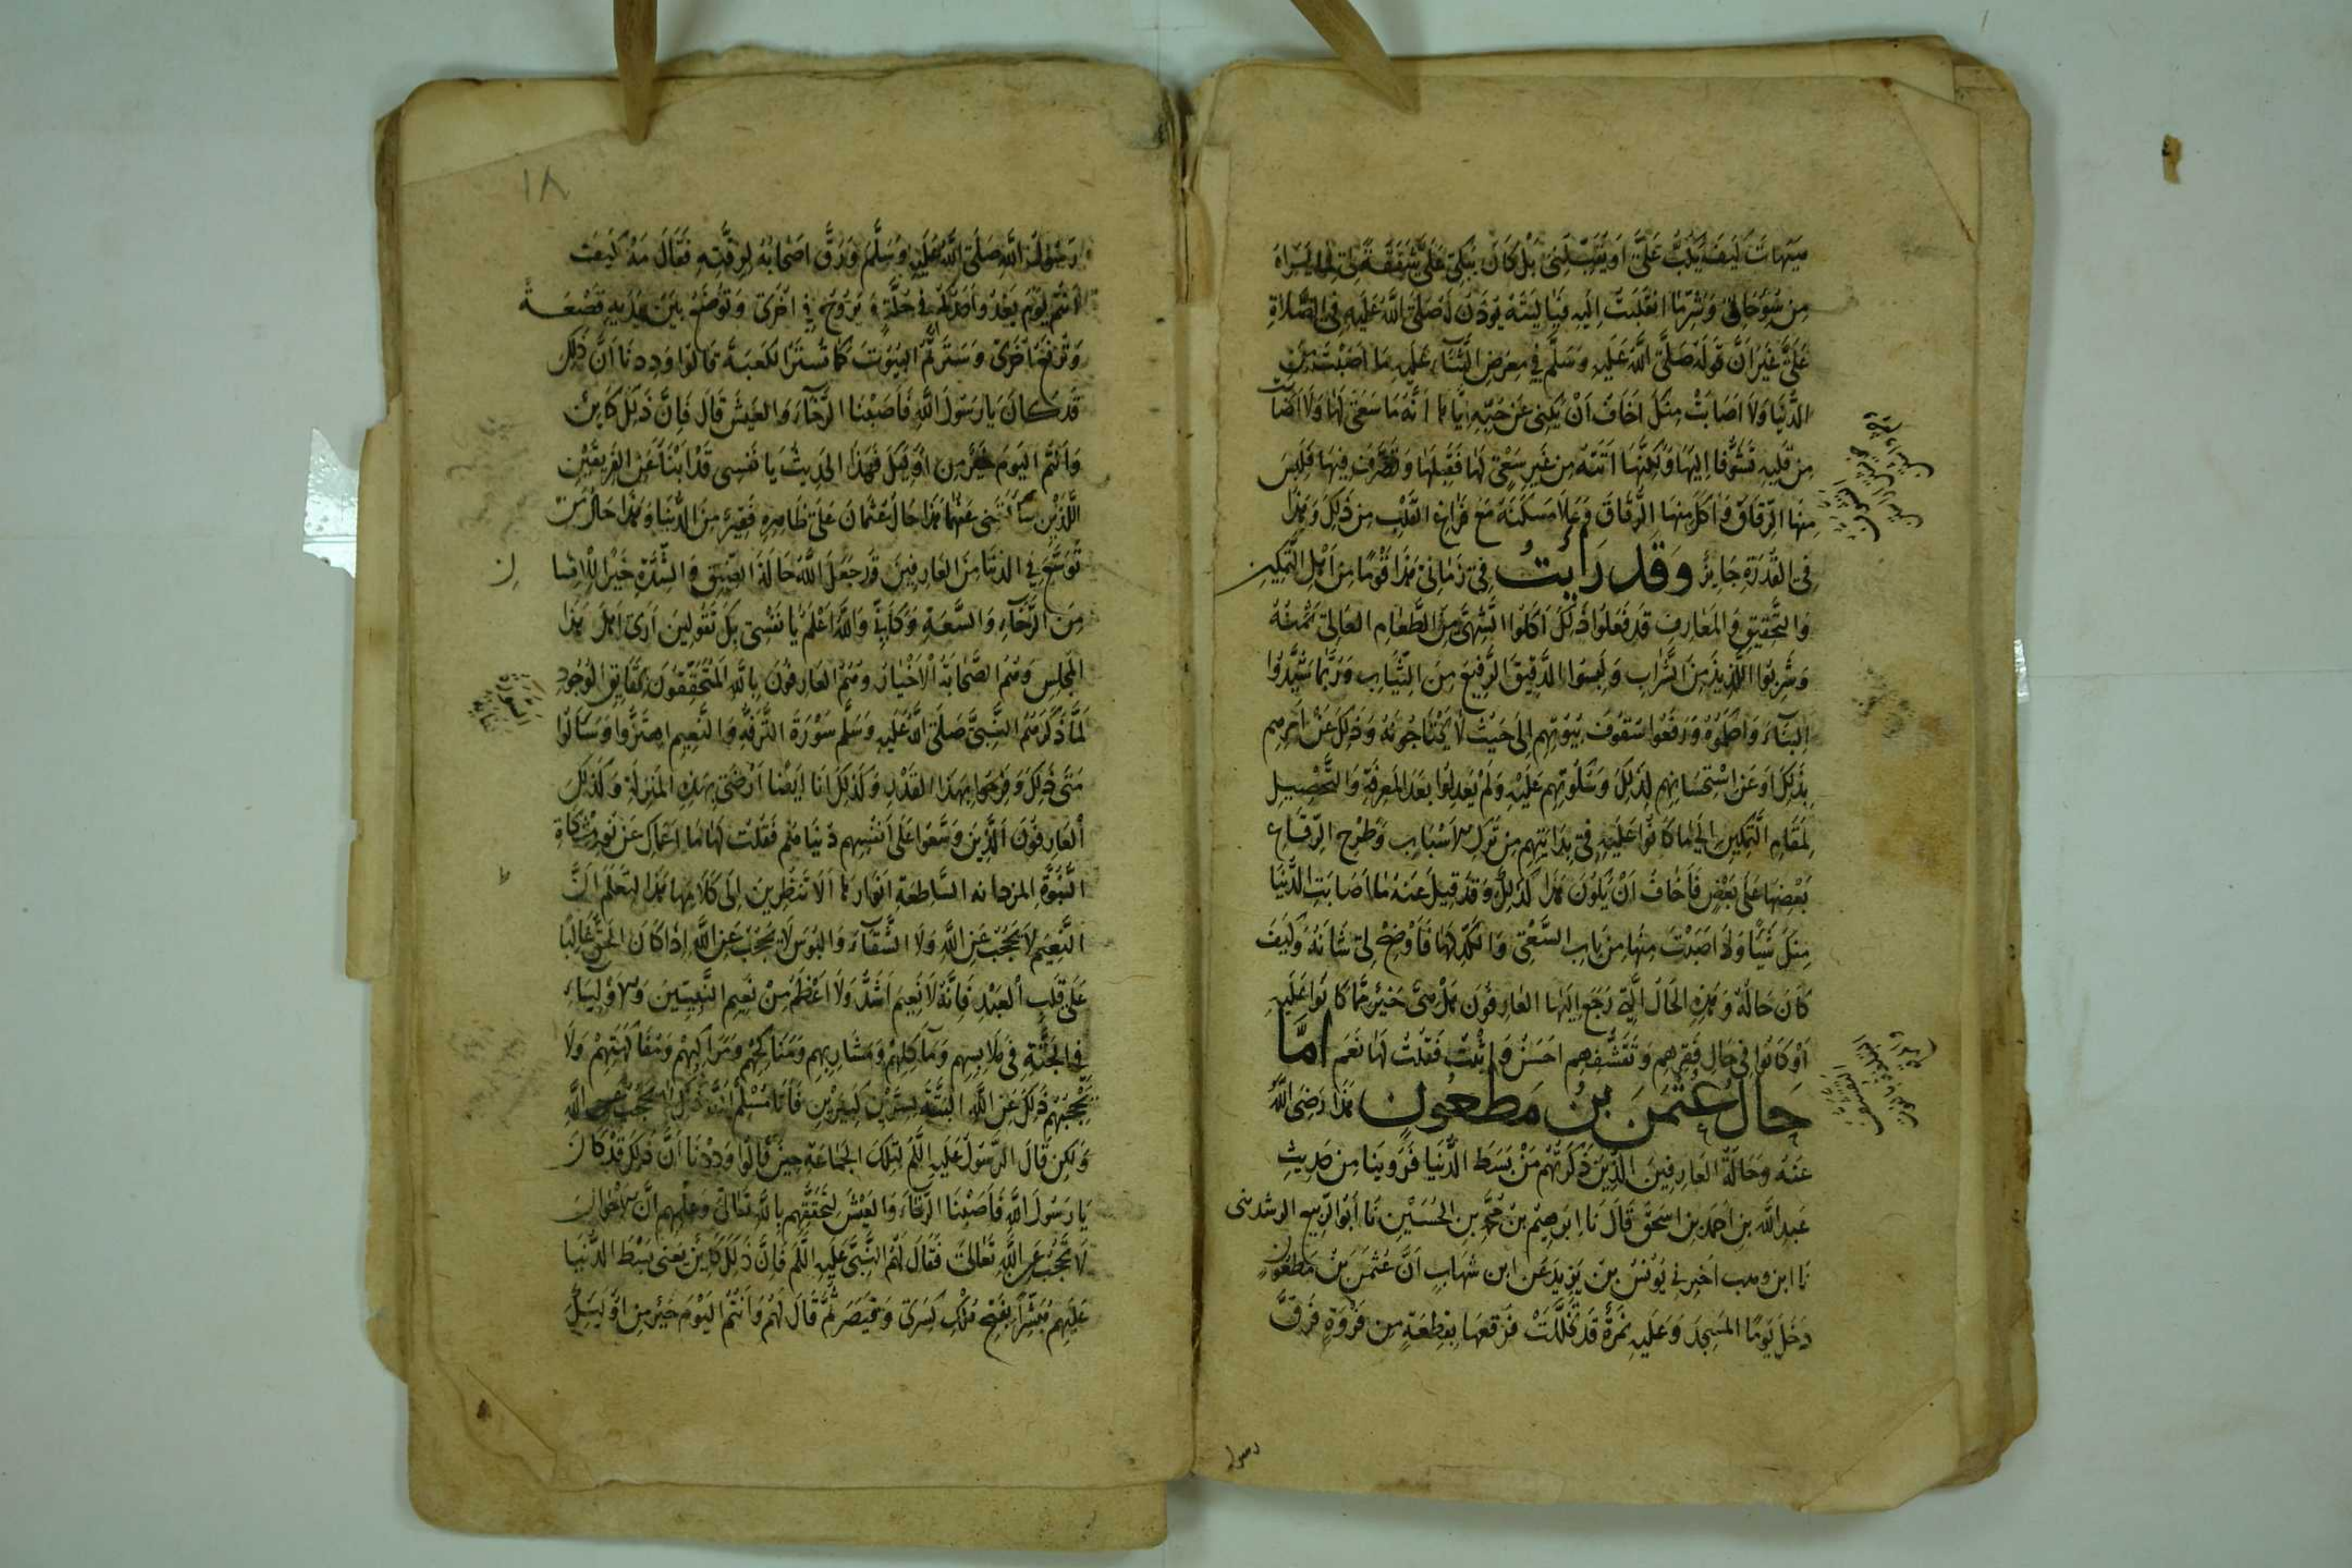 هيهات كَيفَ يَلتفت عَلَيَّ اَو يَقبَلني بَل كانَ يَبكي عَلَيَّ شَفَقَةً لي لما يراه
مِن سُوءِ حَالي وَشَرِّ مَا انقَلَبت اِلَيهِ فَيَا لَيتَهُ يُؤذَن لَه صَلَّى اللَّهُ عَلَيهِ في الصَّلاةِ
عَلَيَّ غَيرَ اَنَّ قَولَه صَلَّى اللَّهُ عَلَيهِ وَسَلَّم فِي مَعرَضِ الثَّنَاءِ عَلَيهِ مَا اَصَبْتَ مِنَ
الدُّنيَا وَلَا اَصَابَتْ مِنكَ اَخَافُ اَنْ يكنى عَن حُبِّهِ اِيَّاهَا اَنَّهُ مَا سَعَى لَهَا وَلَا اَصَابَت
مِن قَلبِهِ تَشَوُّفًا اِلَيهَا وَلكِنَّهَا اَتَتهُ مِن غَيرِ سَعْيٍ لَهَا فَقَبِلَهَا وَتَصَرَّفَ فِيهَا فَلَبِسَ
مِنهَا الرِّقَاقَ وَاَكَلَ مِنهَا الرُّقَاقَ وَعَلَا مَسكَنَهُ مَعَ فَرَاغِ القَلْبِ مِن ذَلِكَ وَهَذَا
فِي القُدرَةِ جَايِزٌ وَقَد رَأَيْتُ فِي زَمَانِي هَذَا قَوْمًا مِن اَهْلِ التَّمكِينِ
وَالتَّحقِيقِ وَالمَعَارِف قَد فَعَلُوا ذَلِكَ اَكَلُوا الشَّهِيَّ مِنَ الطَّعَامِ الغَالِي ثَمَنُهُ
وَشَرِبُوا اللَّذِيذَ مِنَ الشَّرَابِ وَلَبِسُوا الدَّقِيقَ الرَّفِيعَ مِنَ الثِّيَابِ وَرُبَّمَا شَيَّدُوا
البِنَاءَ وَاَعلَوهُ وَرَفَعُوا سُقُوفَ بُيُوتِهِم اِلَى حَيْثُ لَا يَحْتَاجُونَهُ وَذَلِكَ عَنْ اَمرِهِم
بِذَلِكَ اَوعَنِ اسْتِحْسَانِهِم لِذَلِكَ وَسُكُوتِهِم عَلَيهِ وَلَمْ يَعدِلُوا بَعدَ المَعرِفَةِ وَالتَّحْصِيلِ
لِمَقَامِ التَّمكِينِ اِلَى مَا كَانُوا عَلَيهِ فِي بَدَايَتِهِم مِن تَركِ الاَسْبَابِ وَطَرحِ الرِّقَاعِ
بَعْضِهَا عَلَى بَعْضٍ فَاَخَافُ اَنْ يَكُونَ هَذَا كَذَلِكَ وَقَد قِيلَ عَنهُ مَا اَصَابَتِ الدُّنيَا
مِنكَ شَيًا وَلَا اَصَبْتَ مِنهَا مِن بَابِ السَّعْيِ وَالكَدِّ لَهَا فَاَوْضِحْ لِي شَانَهُ وَكَيفَ
كَانَ حَالُهُ وَهَذِهِ الحَالُ الَّتِي رَجَعَ اِلَيهَا العَارِفُونَ هَلْ هِيَ خَيْرٌ مِمَّا كَانُوا عَلَيهِ
اَوْ كَانُوا فِي حَالِ فَقرِهِم وَتَقَشُّفِهِم اَحسَنُ وَاَثبَتُ فَقُلتُ لَهَا نَعَم اَمَّا
حَالُ عُثْمَن بنُ مَطعُون هَذَا رَضِيَ اللَّهُ
عَنهُ وَحَالَةُ العَارِفِينَ الَّذِينَ ذَكَرتُهُم مَنْ بَسَطَ الدُّنيَا فَرُوِينَا مِن حَدِيثِ
عَبدِ اللَّه بنِ اَحمَدَ بنِ اِسحَق قَالَ نَا اِبرهيمُ بن مُحَمَّد بنِ الحُسَينِ نَا اَبُو الرَّبِيع الرشديني
نَا ابن وهب اَخبرني يُونُسُ بن يَزِيدَ عَن ابن شِهَابٍ اَنَّ عُثمَنَ بنَ مَطعُونٍ
دَخَلَ يَومًا المَسجِدَ وَعَلَيهِ نَمِرَةٌ قَد تَخَلَّلَت فَرَقَعَهَا بِقِطعَةٍ مِن فَروَةٍ فَرَقَّ
رسول
١٨
رَسُولُ اللَّهِ صَلَّى اللَّهُ عَلَيهِ وَسَلَّمَ وَرَقَّ اَصحَابُهُ لِرِقَّتِهِ فَقَالَ كَيفَ
اَنتُم يَومَ يَغدُو اَحَدُكُم فِي حُلَّةٍ وَيَرُوحُ فِي اُخرَى وَتُوضَعُ بَينَ يَدَيهِ قَصْعَةٌ
وَتُرفَعُ اُخرَى وَسَتَرتُمُ البُيُوتَ كَمَا تُستَرُ الكَعبَة قَالُوا وَدِدنَا اَنَّ ذَلِكَ
قَد كَانَ يَا رَسُولَ اللَّهِ فَاَصَبْنَا الرَّخَاءَ وَالعَيشَ قَالَ فَاِنَّ ذَلِكَ كَايِنٌ
وَاَنتُم اليَومَ خَيرٌ مِن اُولَئِكَ فَهَذَا الحَدِيثُ يَا نَفسِي قَد اَنبَأَ عَنِ الفَرِيقَينِ
اللَّذَينِ سَاَلتَنِي عَنهُمَا هَذَا حَالُ عُثمَانَ عَلَى ظَاهِرِهِ فَقِيرٌ مِنَ الدُّنيَا وَهَذَا حَالُ مَن
تَوَسَّعَ فِي الدُّنيَا مِنَ العَارِفِينَ قَد جَعَلَ اللَّهُ حَالَةَ الضِّيقِ وَالشِّدَّةِ خَيْرًا لِلاِنسَا ن
مِنَ الرَّخَاءِ وَالسَّعَةِ وَكَاَنِّي وَاللَّهُ اَعْلَمُ يَا نَفْسِي بِكَ تَقُولِينَ اَرَى اَهلَ هَذَا
المَجلِسِ وَهُمُ الصَّحَابَةُ الاَخيَارُ وَهُمُ العَارِفُونَ بِاللَّهِ المُتَحَقِّقُونَ بِحَقَايِقِ الوُجُودِ
لَمَّا ذَكَرَ لَهُمُ النَّبِيُّ صَلَّى اللَّهُ عَلَيهِ وَسَلَّم سَورَةَ التَّرَفُّهِ وَالنَّعِيمِ اهتَزُّوا وَسَاَلُوا
مَتَى ذَلِكَ وَفَرِحُوا بِهَذَا القَدْرِ وَكَذَلِكَ اَنَا اَيضًا اَرضَى بِهَذِهِ المَنزِلَةِ وَكَذَلِكَ
العَارِفُونَ الَّذِينَ وَسَّعُوا عَلَى اَنفُسِهِم دُنيَاهُم فَقُلتُ لَهَا مَا اَعمَاكِ عَن نُورِ مِشكَاةِ
النُّبُوَّةِ السَّاطِعَةِ اَنوَارهَا اَلَا تَنظُرِينَ اِلَى كَلَامِهَا هَذَا لتَعلَمَ اَنَّ
النَّعِيمَ لَا يَحجُبُ عَنِ اللَّهِ وَلَا الشَّقَاءَ وَالبُوسَ لَا يَحجُبُ عَنِ اللَّهِ اِذَا كَانَ الحَقُّ غَالِبًا
عَلَى قَلبِ العَبْدِ فَاِنَّهُ لَا نَعِيمَ اَشَدُّ وَلَا اَعْظَمُ مِنْ نَعِيمِ النَّبِيِّينَ وَالاَوْلِيَاءِ
فِي الجَنَّةِ فِي مَلَابِسِهِم وَمَآكِلِهِم وَمَشَارِبِهِم وَمَنَاكِحِهِم وَمَرَاكِبِهِم وَمُفَاكَهَتِهِمْ وَلَا
يَحْجُبُهُم ذَلِكَ عَنِ اللَّهِ البَتَّةَ عن اللَّهِ
وَلَكِن قَالَ الرَّسُولُ عَلَيهِ السَّلَم لِتِلكَ الجَمَاعَةِ حِينَ قَالُوا وَدِدْنَا اَنَّ ذَلِكَ قَد كَانَ
يَا رَسُولَ اللَّهِ فَاَصَبْنَا الرَّخَاءَ وَالعَيْشَ لِتَحَقُّقِهِم بِاللَّهِ تَعَالَى وَعِلمِهِم اَنَّ الاَحْوَالَ
لَا تَحجُبُ عَنِ اللَّهِ تَعَالَى فَقَالَ لَهُمُ النَّبِيُّ عَلَيهِ السَّلَم فَاِنَّ ذَلِكَ كَايِنٌ يَعنِي بَسْطَ الدُّنيَا
عَلَيهِم مُبَشِّرًا بِفَتْحِ مُلْكِ كِسرَى وَقَيصَرَ ثُمَّ قَالَ لَهُم وَاَنتُمُ اليَوْمَ خَيْرٌ مِن اُولَئِكَ